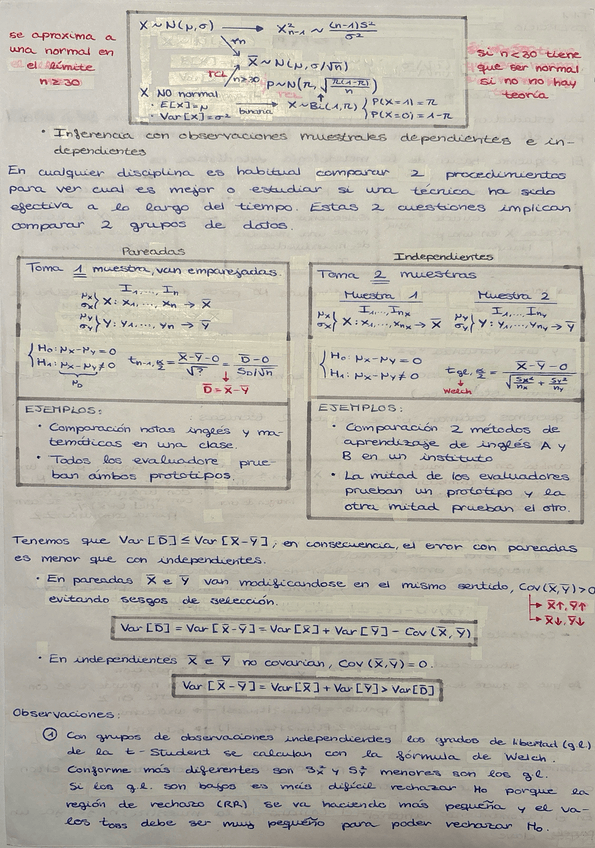 se aproxima a
una normal en
el límite
n≥30
X ~ N(μ, σ) → X²n-1 ~ (n-1)S²/σ²
mn
X̄ ~ N(μ, σ/√n)
TCL
n≥30
p ~ N(π, √(π(1-π)/n))
X NO normal
• E[X]=μ
• Var[X]=σ²
binaria
X ~ Bi(1,π)
P(X=1)=π
P(X=0)=1-π
si n≥30 tiene
que ser normal
si no no hay
teoría
• Inferencia con observaciones muestrales dependientes e in-
dependientes
En cualquier disciplina es habitual comparar 2 procedimientos
para ver cual es mejor o estudiar si una técnica ha sido
efectiva a lo largo del tiempo. Estas 2 cuestiones implican
comparar 2 grupos de datos.
Pareadas
Toma 1 muestra, van emparejadas.
I1,..., In
μx σx } X: x1,..., xn → X̄
μy σy } Y: y1,..., yn → Ȳ
{ H0: μx-μy=0
H1: μx-μy≠0
μD
tn-1, α/2 = X̄-Ȳ-0/√? = D̄-0/SD/√n
D̄=X̄-Ȳ
EJEMPLOS:
• Comparación notas inglés y ma-
temáticas en una clase.
• Todos los evaluadore prue-
ban ambos prototipos.
Independientes
Toma 2 muestras
Muestra 1
I1,..., Inx
μx σx } X: x1,..., xnx → X̄
Muestra 2
I1,..., Iny
μy σy } Y: y1,..., yny → Ȳ
{ H0: μx-μy=0
H1: μx-μy≠0
tgl, α/2 = X̄-Ȳ-0/√(Sx²/nx + Sy²/ny)
Welch
EJEMPLOS:
• Comparación 2 métodos de
aprendizaje de inglés A y
B en un instituto
• La mitad de los evaluadores
prueban un prototipo y la
otra mitad prueban el otro.
Tenemos que Var[D̄] ≤ Var[X̄-Ȳ], en consecuencia, el error con pareadas
es menor que con independientes.
• En pareadas X̄ e Ȳ van modificandose en el mismo sentido, Cov(X̄,Ȳ)>0
evitando sesgos de selección.
→ X̄↑, Ȳ↑
→ X̄↓, Ȳ↓
Var[D̄] = Var[X̄-Ȳ] = Var[X̄] + Var[Ȳ] - Cov(X̄, Ȳ)
• En independientes X̄ e Ȳ no covarían, Cov(X̄,Ȳ)=0.
Var[X̄-Ȳ] = Var[X̄] + Var[Ȳ] > Var[D̄]
Observaciones:
① Con grupos de observaciones independientes los grados de libertad (g.l.)
de la t-Student se calculan con la fórmula de Welch.
Conforme más diferentes son Sx² y Sy² menores son los g.l.
Si los g.l. son bajos es más difícil rechazar H0 porque la
región de rechazo (RR) se va haciendo más pequeña y el va-
los tOBS debe ser muy pequeño para poder rechazar H0.